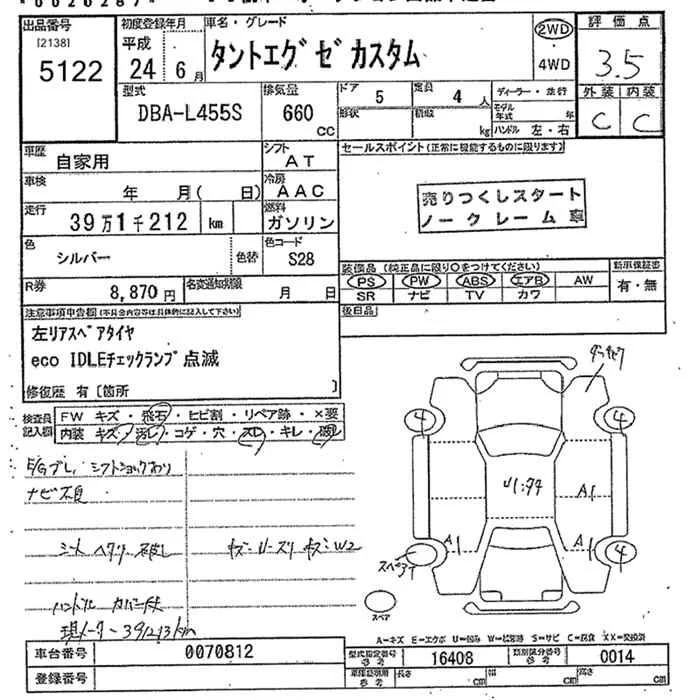 出品番号
[2138]
5122
初度登録年月
平成
24年 6月
車名・グレード
タントエグゼカスタム
2WD
・
4WD
評価点
3.5
外装 内装
C C
型式
DBA-L455S
排気量
660 CC
ドア 5
定員 4 人
形状
積載 kg
ディーラー・並行
モデル年式 年
ハンドル 左・右
車歴 自家用
シフト AT
車検 年 月( 日)
冷房 AAC
走行 39万1千212 km
燃料 ガソリン
色 シルバー 色替
色コード S28
R券 8,870円
名変通知期限 月 日
セールスポイント(正常に機能するものに限ります)
売りつくしスタート
ノークレーム車
装備品(純正品に限り○をつけてください)
PS PW ABS エアB AW
SR ナビ TV カワ
新車保証書
有・無
後日品
注意事項申告欄(不具合内容等は具体的に記入して下さい)
左リアスペアタイヤ
eco IDLEチェックランプ点滅
修復歴 有〔箇所 〕
検査員記入欄
FW キズ・飛石・ヒビ割・リペア跡・×要
内装 キズ・汚レ・コゲ・穴・スレ・キレ・破レ
E/Gブレ、シフトショックあり
ナビ不良
シート ヘタリ 破し
ハンドル カバー付
現メーター391213km
4 4
4
U1:74
A1
A1 A1
スペアT
スペア
A=キズ E=エクボ U=凹み W=補修跡 S=サビ C=腐食 XX=交換済
車台番号 0070812
登録番号
型式指定番号 参考 16408
類別区分番号 参考 0014
車庫証明用 参考 長さ cm 幅 cm 高さ cm